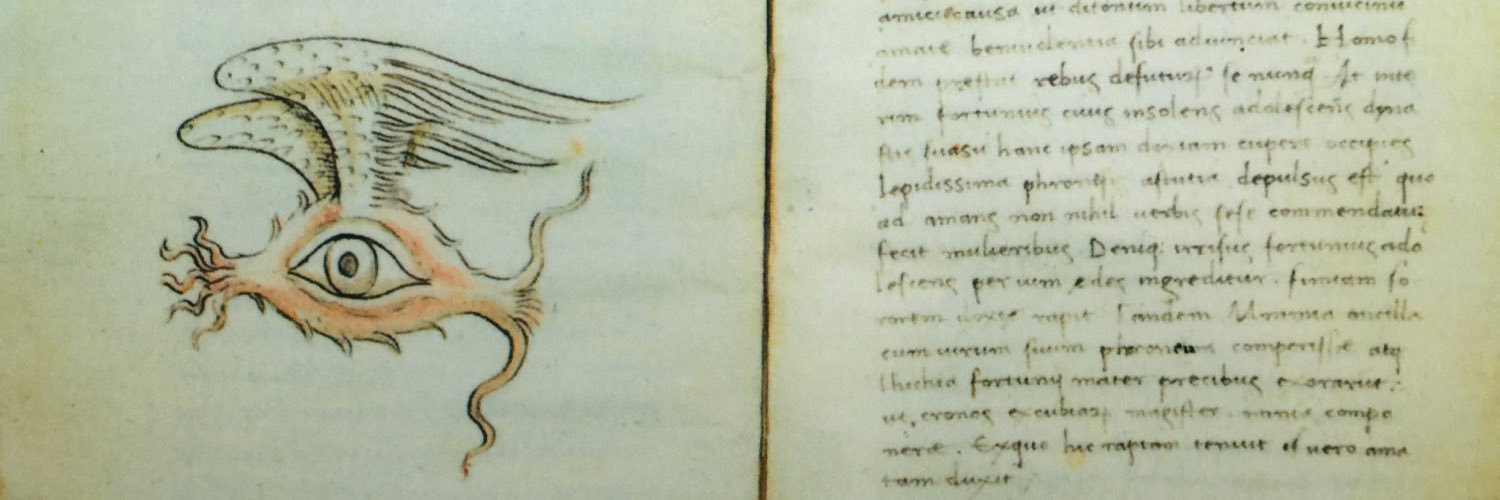 amicicausa ut ditonum libertum conuicinu
amare beniuolentia sibi adiungat. Homo f
dem prestat rebus defuturꝰ se nunq̃. At inte
rim fortunius cuius insolens adolescens dyna
stis suasu hanc ipsam doxiam cupere occipies
lepidissima phronesis astutia depulsus est quo
ad amans non nihil uerbis sese commendatuꝫ
fecit mulieribus Deniqꝫ irrisus fortunius ado
lescens per uim edes ingreditur.
rapit Tandem Mnimia ancilla
cum uirum suum phroneum comperisse atqꝫ
fortunij mater precibus exorarit.
ut, cronos excubiaꝝ magister. omnia compo
nerœ. Exquo hic raptam tenuit is vero ama
tam duxit